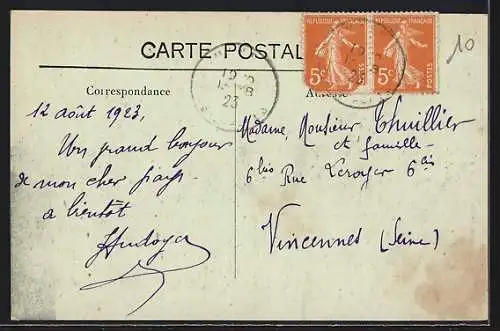 CARTE POSTALE
RÉPUBLIQUE FRANÇAISE
RÉPUBLIQUE FRANÇAISE
5c POSTES
5c POSTES
10
Correspondance
Adresse
23
23
12 août 1923,
Un grand bonjour
de mon cher pays.
a bientôt
Madame, Monsieur Thuillier
et famille
6 bis Rue Leroyer 6 bis
Vincennes (Seine)